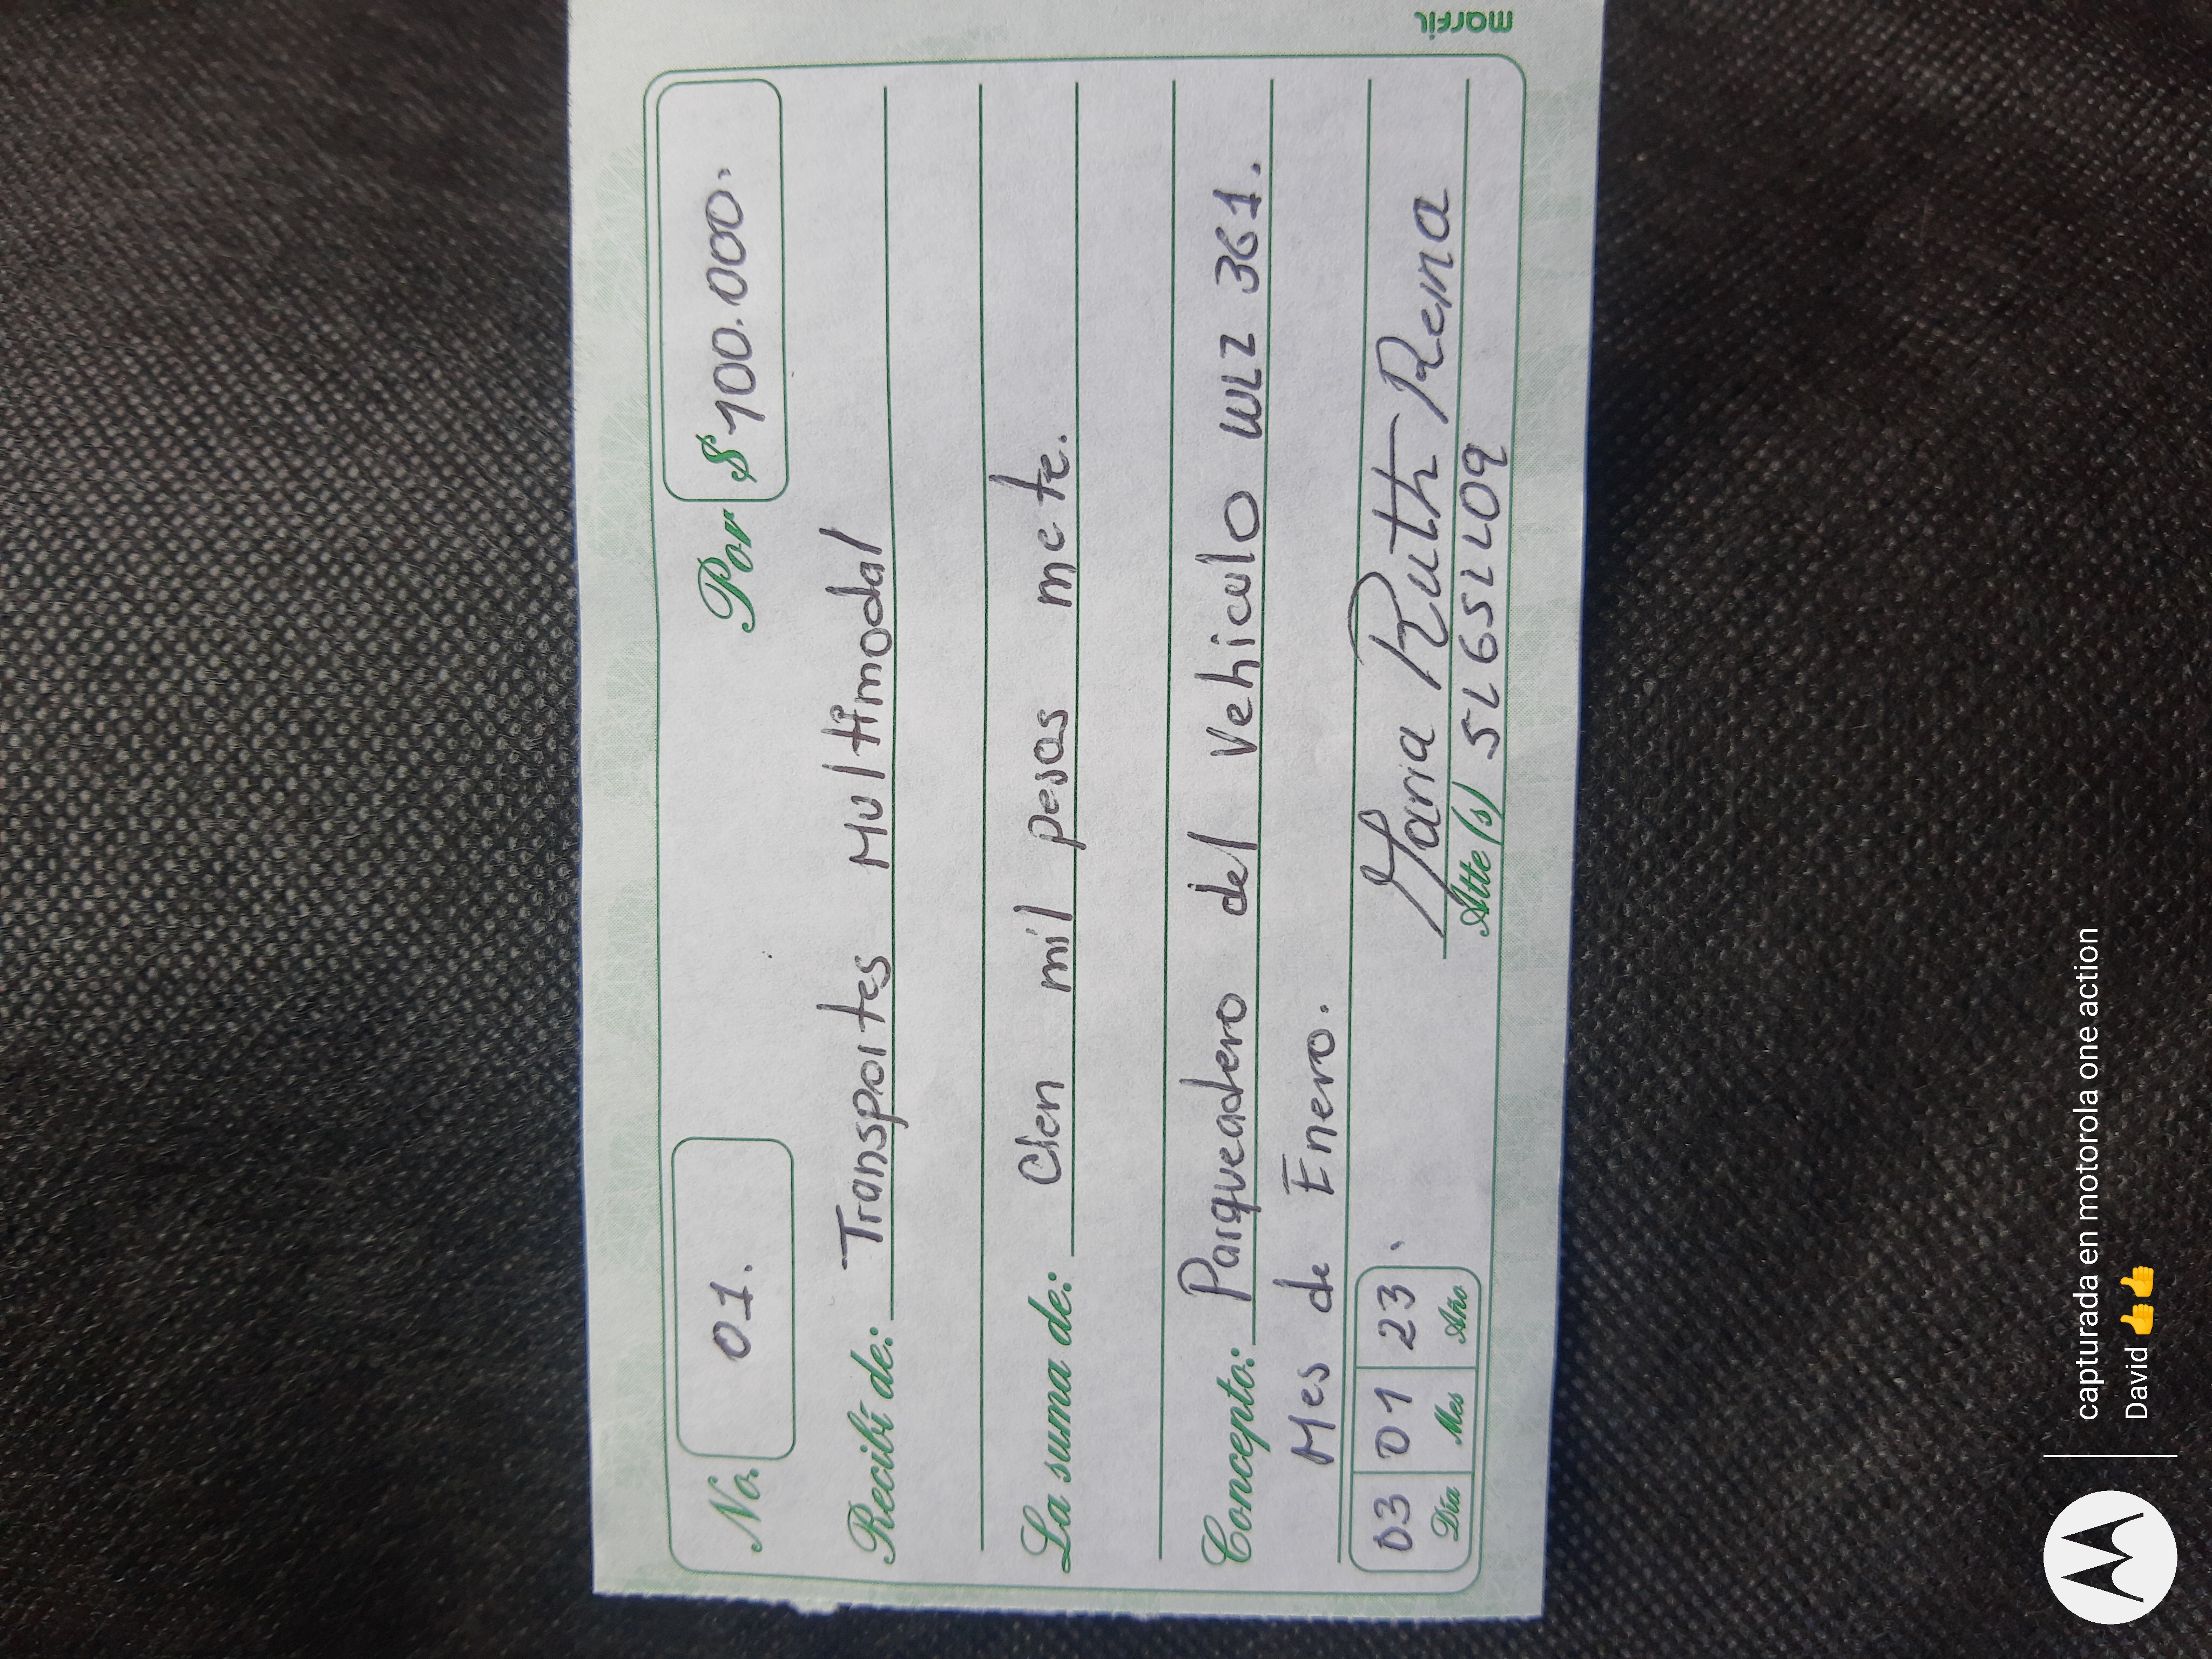 marfil
No. 01. Por $ 100.000.
Recibí de: Transportes Multimodal
La suma de: Cien mil pesos mcte.
Concepto: Parqueadero del Vehiculo WLZ 361.
Mes de Enero.
03 01 23.
Día Mes Año
Maria Ruth Rema
Atte (s) 52652209
capturada en motorola one action
David 👍👍